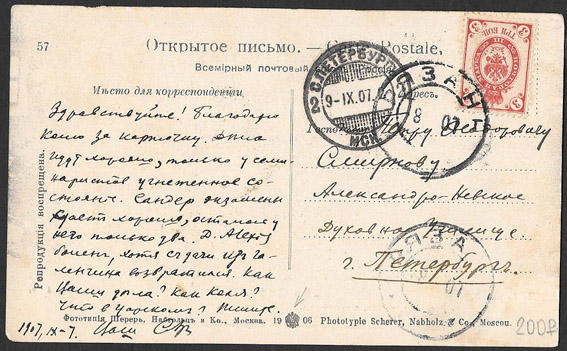 57
Открытое письмо. — Carte Postale.
Всемірный почтовый
Мѣсто для корреспонденціи
Адресъ.
Здравствуйте! Благодарю
васъ за карточку. Дѣла
идутъ хорошо, только у семи-
наристовъ угнетенное со-
стояніе. Сандер экзамены
сдаетъ хорошо, осталось у
него только два. Д.
боленъ, хотя
возвратился. Какъ
Ваши дѣла? Какъ
Что въ Пишите.
1907, IX-7. Вашъ
Господину
Смирнову
Александро-Невское
Духовное Училище
г. Петербургъ
С.ПЕТЕРБУРГ
9-IX.07
2
МСК
РЯЗАНЬ
8
07
РЯЗА
07
ТРИ КОП.
3
3
Репродукція воспрещена.
Фототипія Шереръ, Набгольцъ и Ко., Москва. 19 06 Phototypie Scherer, Nabholz & Co, Moscou.
200р